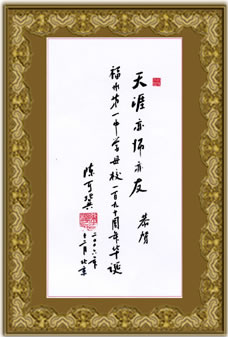 天涯亦师亦友
恭贺
福州第一中学母校一百九十周年华诞
陈可冀
二〇〇六年
十二月北京